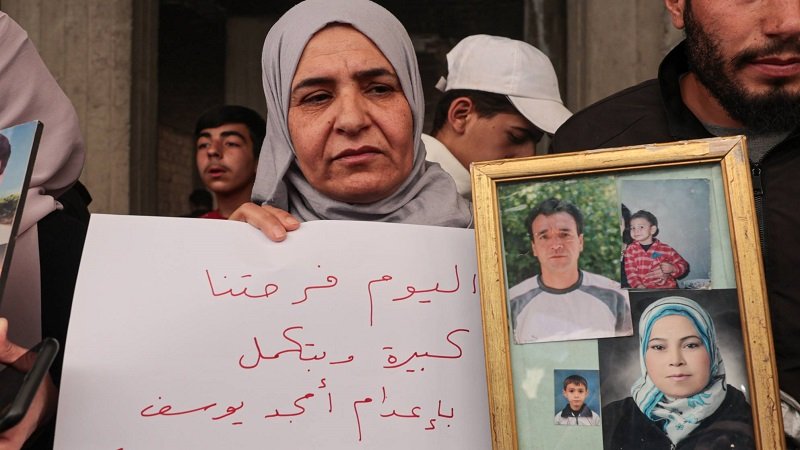 اليوم فرحتنا
كبيرة وبتكمل
بإعدام أمجد يوسف